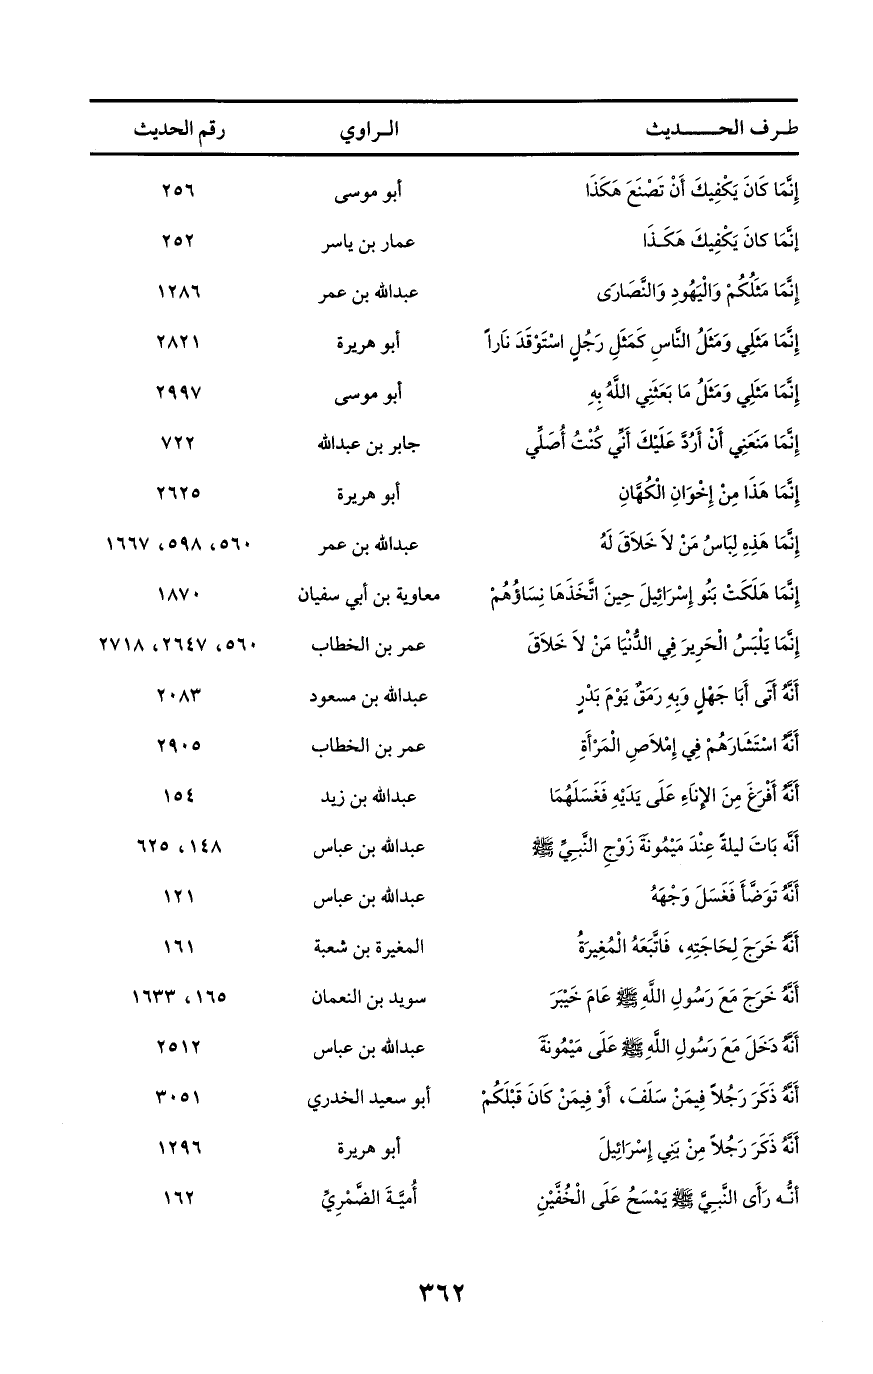 طرف الحديث الراوي رقم الحديث
إِنَّمَا كَانَ يَكْفِيكَ أَنْ تَصْنَعَ هَكَذَا أبو موسى ٢٥٦
إنَّمَا كانَ يَكْفِيكَ هَكَذَا عمار بن ياسر ٢٥٢
إِنَّمَا مَثَلُكُمْ وَالْيَهُودِ وَالنَّصَارَى عبدالله بن عمر ١٢٨٦
إِنَّمَا مَثَلِي وَمَثَلُ النَّاسِ كَمَثَلِ رَجُلٍ اسْتَوْقَدَ نَاراً أبو هريرة ٢٨٢١
إِنَّمَا مَثَلِي وَمَثَلُ مَا بَعَثَنِي اللَّهُ بِهِ أبو موسى ٢٩٩٧
إِنَّمَا مَنَعَنِي أَنْ أَرُدَّ عَلَيْكَ أَنِّي كُنْتُ أُصَلِّي جابر بن عبدالله ٧٢٢
إِنَّمَا هَذَا مِنْ إِخْوَانِ الْكُهَّانِ أبو هريرة ٢٦٢٥
إِنَّمَا هَذِهِ لِبَاسُ مَنْ لاَ خَلاَقَ لَهُ عبدالله بن عمر ٥٦٠، ٥٩٨، ١٦٦٧
إِنَّمَا هَلَكَتْ بَنُو إِسْرَائِيلَ حِينَ اتَّخَذَهَا نِسَاؤُهُمْ معاوية بن أبي سفيان ١٨٧٠
إِنَّمَا يَلْبَسُ الْحَرِيرَ فِي الدُّنْيَا مَنْ لاَ خَلاَقَ عمر بن الخطاب ٥٦٠، ٢٦٤٧، ٢٧١٨
أَنَّهُ أَتَى أَبَا جَهْلٍ وَبِهِ رَمَقٌ يَوْمَ بَدْرٍ عبدالله بن مسعود ٢٠٨٣
أَنَّهُ اسْتَشَارَهُمْ فِي إِمْلاَصِ الْمَرْأَةِ عمر بن الخطاب ٢٩٠٥
أَنَّهُ أَفْرَغَ مِنَ الإِنَاءِ عَلَى يَدَيْهِ فَغَسَلَهُمَا عبدالله بن زيد ١٥٤
أَنَّه بَاتَ ليلةً عِنْدَ مَيْمُونَةَ زَوْجِ النَّبِيِّ ﷺ عبدالله بن عباس ١٤٨، ٦٢٥
أَنَّهُ تَوَضَّأَ فَغَسَلَ وَجْهَهُ عبدالله بن عباس ١٢١
أَنَّهُ خَرَجَ لِحَاجَتِهِ، فَاتَّبَعَهُ الْمُغِيرَةُ المغيرة بن شعبة ١٦١
أَنَّهُ خَرَجَ مَعَ رَسُولِ اللَّهِ ﷺ عَامَ خَيْبَرَ سويد بن النعمان ١٦٥، ١٦٣٣
أَنَّهُ دَخَلَ مَعَ رَسُولِ اللَّهِ ﷺ عَلَى مَيْمُونَةَ عبدالله بن عباس ٢٥١٢
أَنَّهُ ذَكَرَ رَجُلاً فِيمَنْ سَلَفَ، أَوْ فِيمَنْ كَانَ قَبْلَكُمْ أبو سعيد الخدري ٣٠٥١
أَنَّهُ ذَكَرَ رَجُلاً مِنْ بَنِي إِسْرَائِيلَ أبو هريرة ١٢٩٦
أنَّه رَأَى النَّبِيَّ ﷺ يَمْسَحُ عَلَى الْخُفَّيْنِ أُمَيَّةَ الضَّمْرِيِّ ١٦٢
٣٦٢